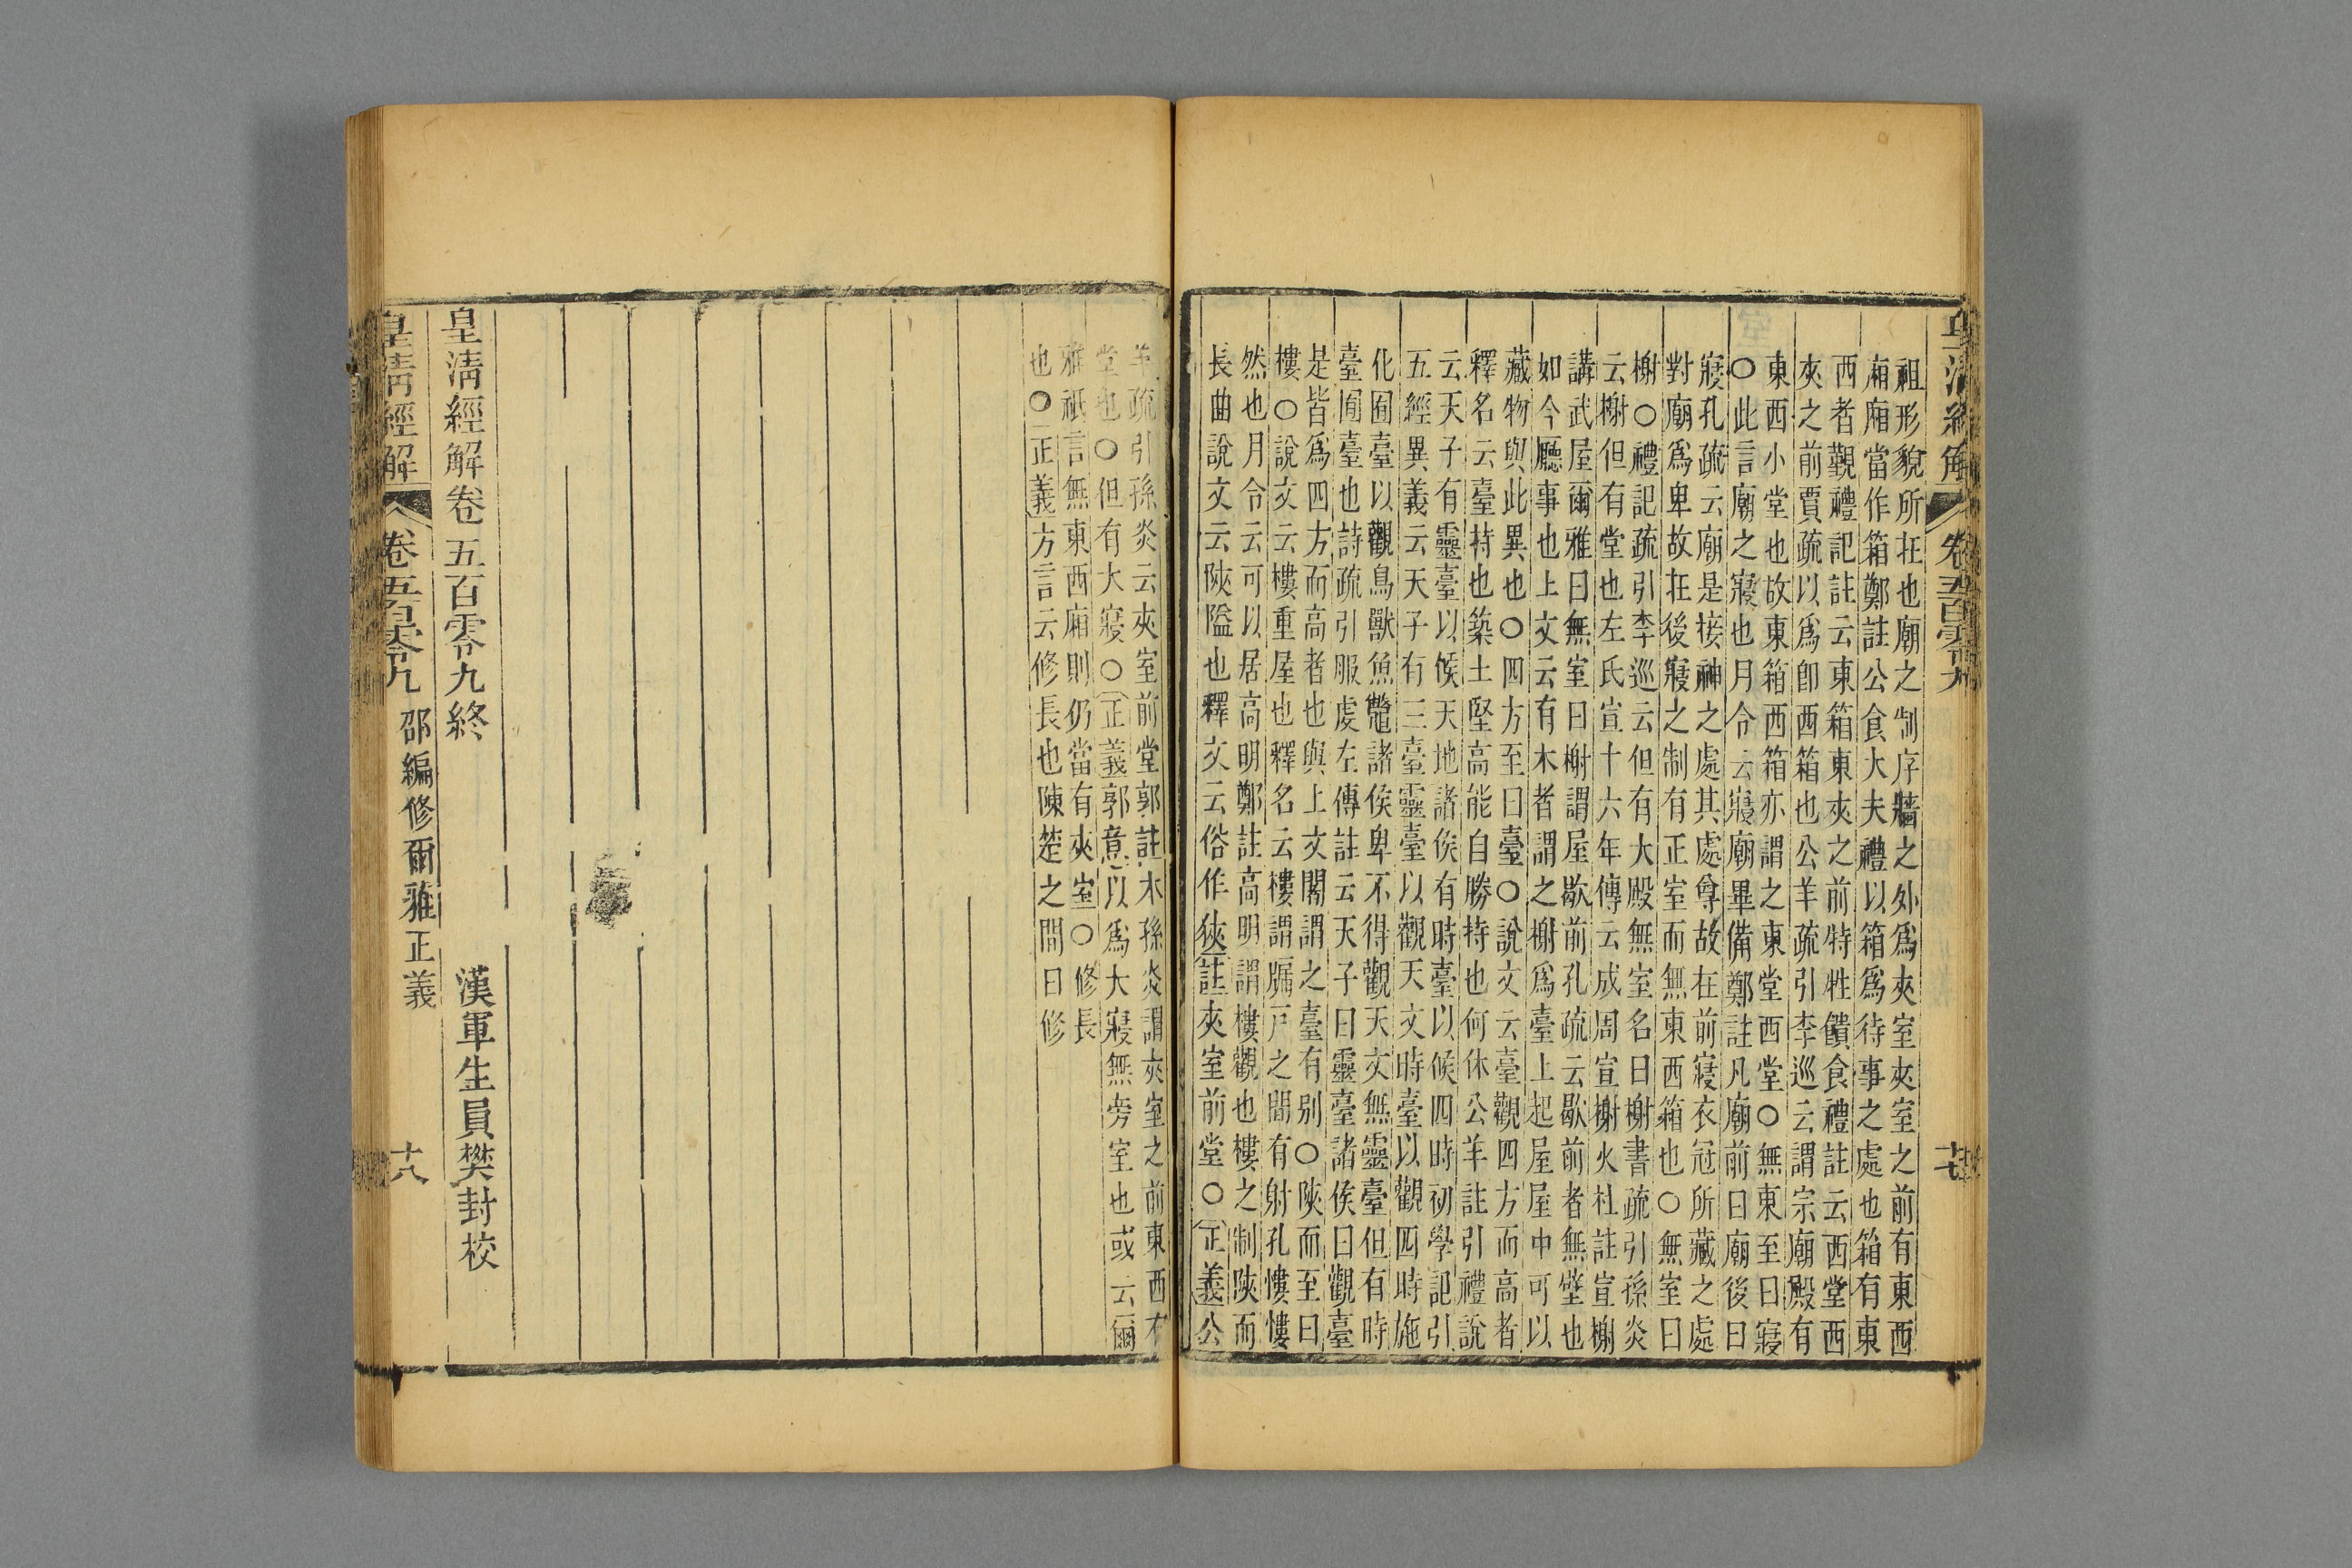 皇清經解
卷五百零九
十七
祖形貌所在也廟之制序牆之外爲夾室夾室之前有東西
廂廂當作箱鄭註公食大夫禮以箱爲待事之處也箱有東
西者覲禮記註云東箱東夾之前特牲饋食禮註云西堂西
夾之前賈疏以爲卽西箱也公羊疏引李巡云謂宗廟殿有
東西小堂也故東箱西箱亦謂之東堂西堂○無東至曰寢
○此言廟之寢也月令云寢廟畢備鄭註凡廟前曰廟後曰
寢孔疏云廟是接神之處其處尊故在前寢衣冠所藏之處
對廟爲卑故在後寢之制有正室而無東西箱也○無室曰
榭○禮記疏引李巡云但有大殿無室名曰榭書疏引孫炎
云榭但有堂也左氏宣十六年傳云成周宣榭火杜註宣榭
講武屋爾雅曰無室曰榭謂屋歇前孔疏云歇前者無壁也
如今廳事也上文云有木者謂之榭爲臺上起屋屋中可以
藏物與此異也○四方至曰臺○說文云臺觀四方而高者
釋名云臺持也築土堅高能自勝持也何休公羊註引禮說
云天子有靈臺以候天地諸侯有時臺以候四時初學記引
五經異義云天子有三臺靈臺以觀天文時臺以觀四時施
化囿臺以觀鳥獸魚鼈諸侯卑不得觀天文無靈臺但有時
臺囿臺也詩疏引服虔左傳註云天子曰靈臺諸侯曰觀臺
是皆爲四方而高者也與上文闍謂之臺有別○陜而至曰
樓○說文云樓重屋也釋名云樓謂牖戸之間有射孔慺慺
然也月令云可以居高明鄭註高明謂樓觀也樓之制陜而
長曲說文云陜隘也釋文云俗作狹註夾室前堂○正義公
羊疏引孫炎云夾室前堂郭註本孫炎謂夾室之前東西有
堂也○但有大寢○正義郭意以爲大寢無旁室也或云爾
雅祇言無東西廂則仍當有夾室○修長
也○正義方言云修長也陳楚之間曰修
皇清經解卷五百零九終
漢軍生員樊封校
皇清經解
卷五百零九
邵編修爾雅正義
十八